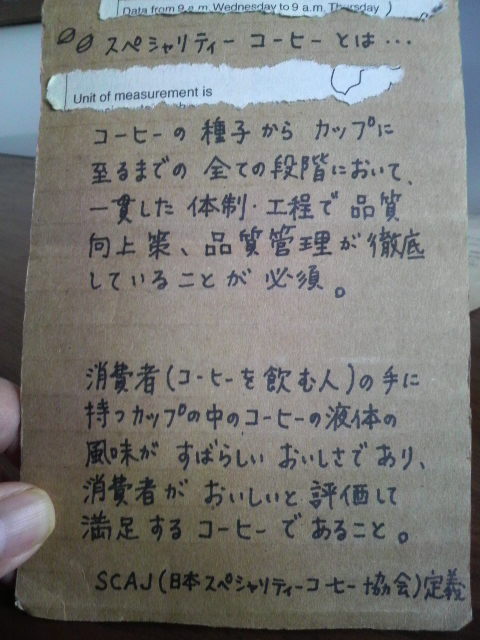 Data from 9 a.m. Wednesday to 9 a.m. Thursday )
スペシャリティー コーヒー とは…
Unit of measurement is
コーヒーの 種子から カップに
至るまでの 全ての段階において、
一貫した 体制・工程で 品質
向上 策、品質管理が 徹底
していることが 必須。
消費者(コーヒーを飲む人)の手に
持つカップの中のコーヒーの液体の
風味が すばらしい おいしさであり、
消費者が おいしいと 評価して
満足する コーヒーであること。
SCAJ(日本スペシャリティーコーヒー協会)定義